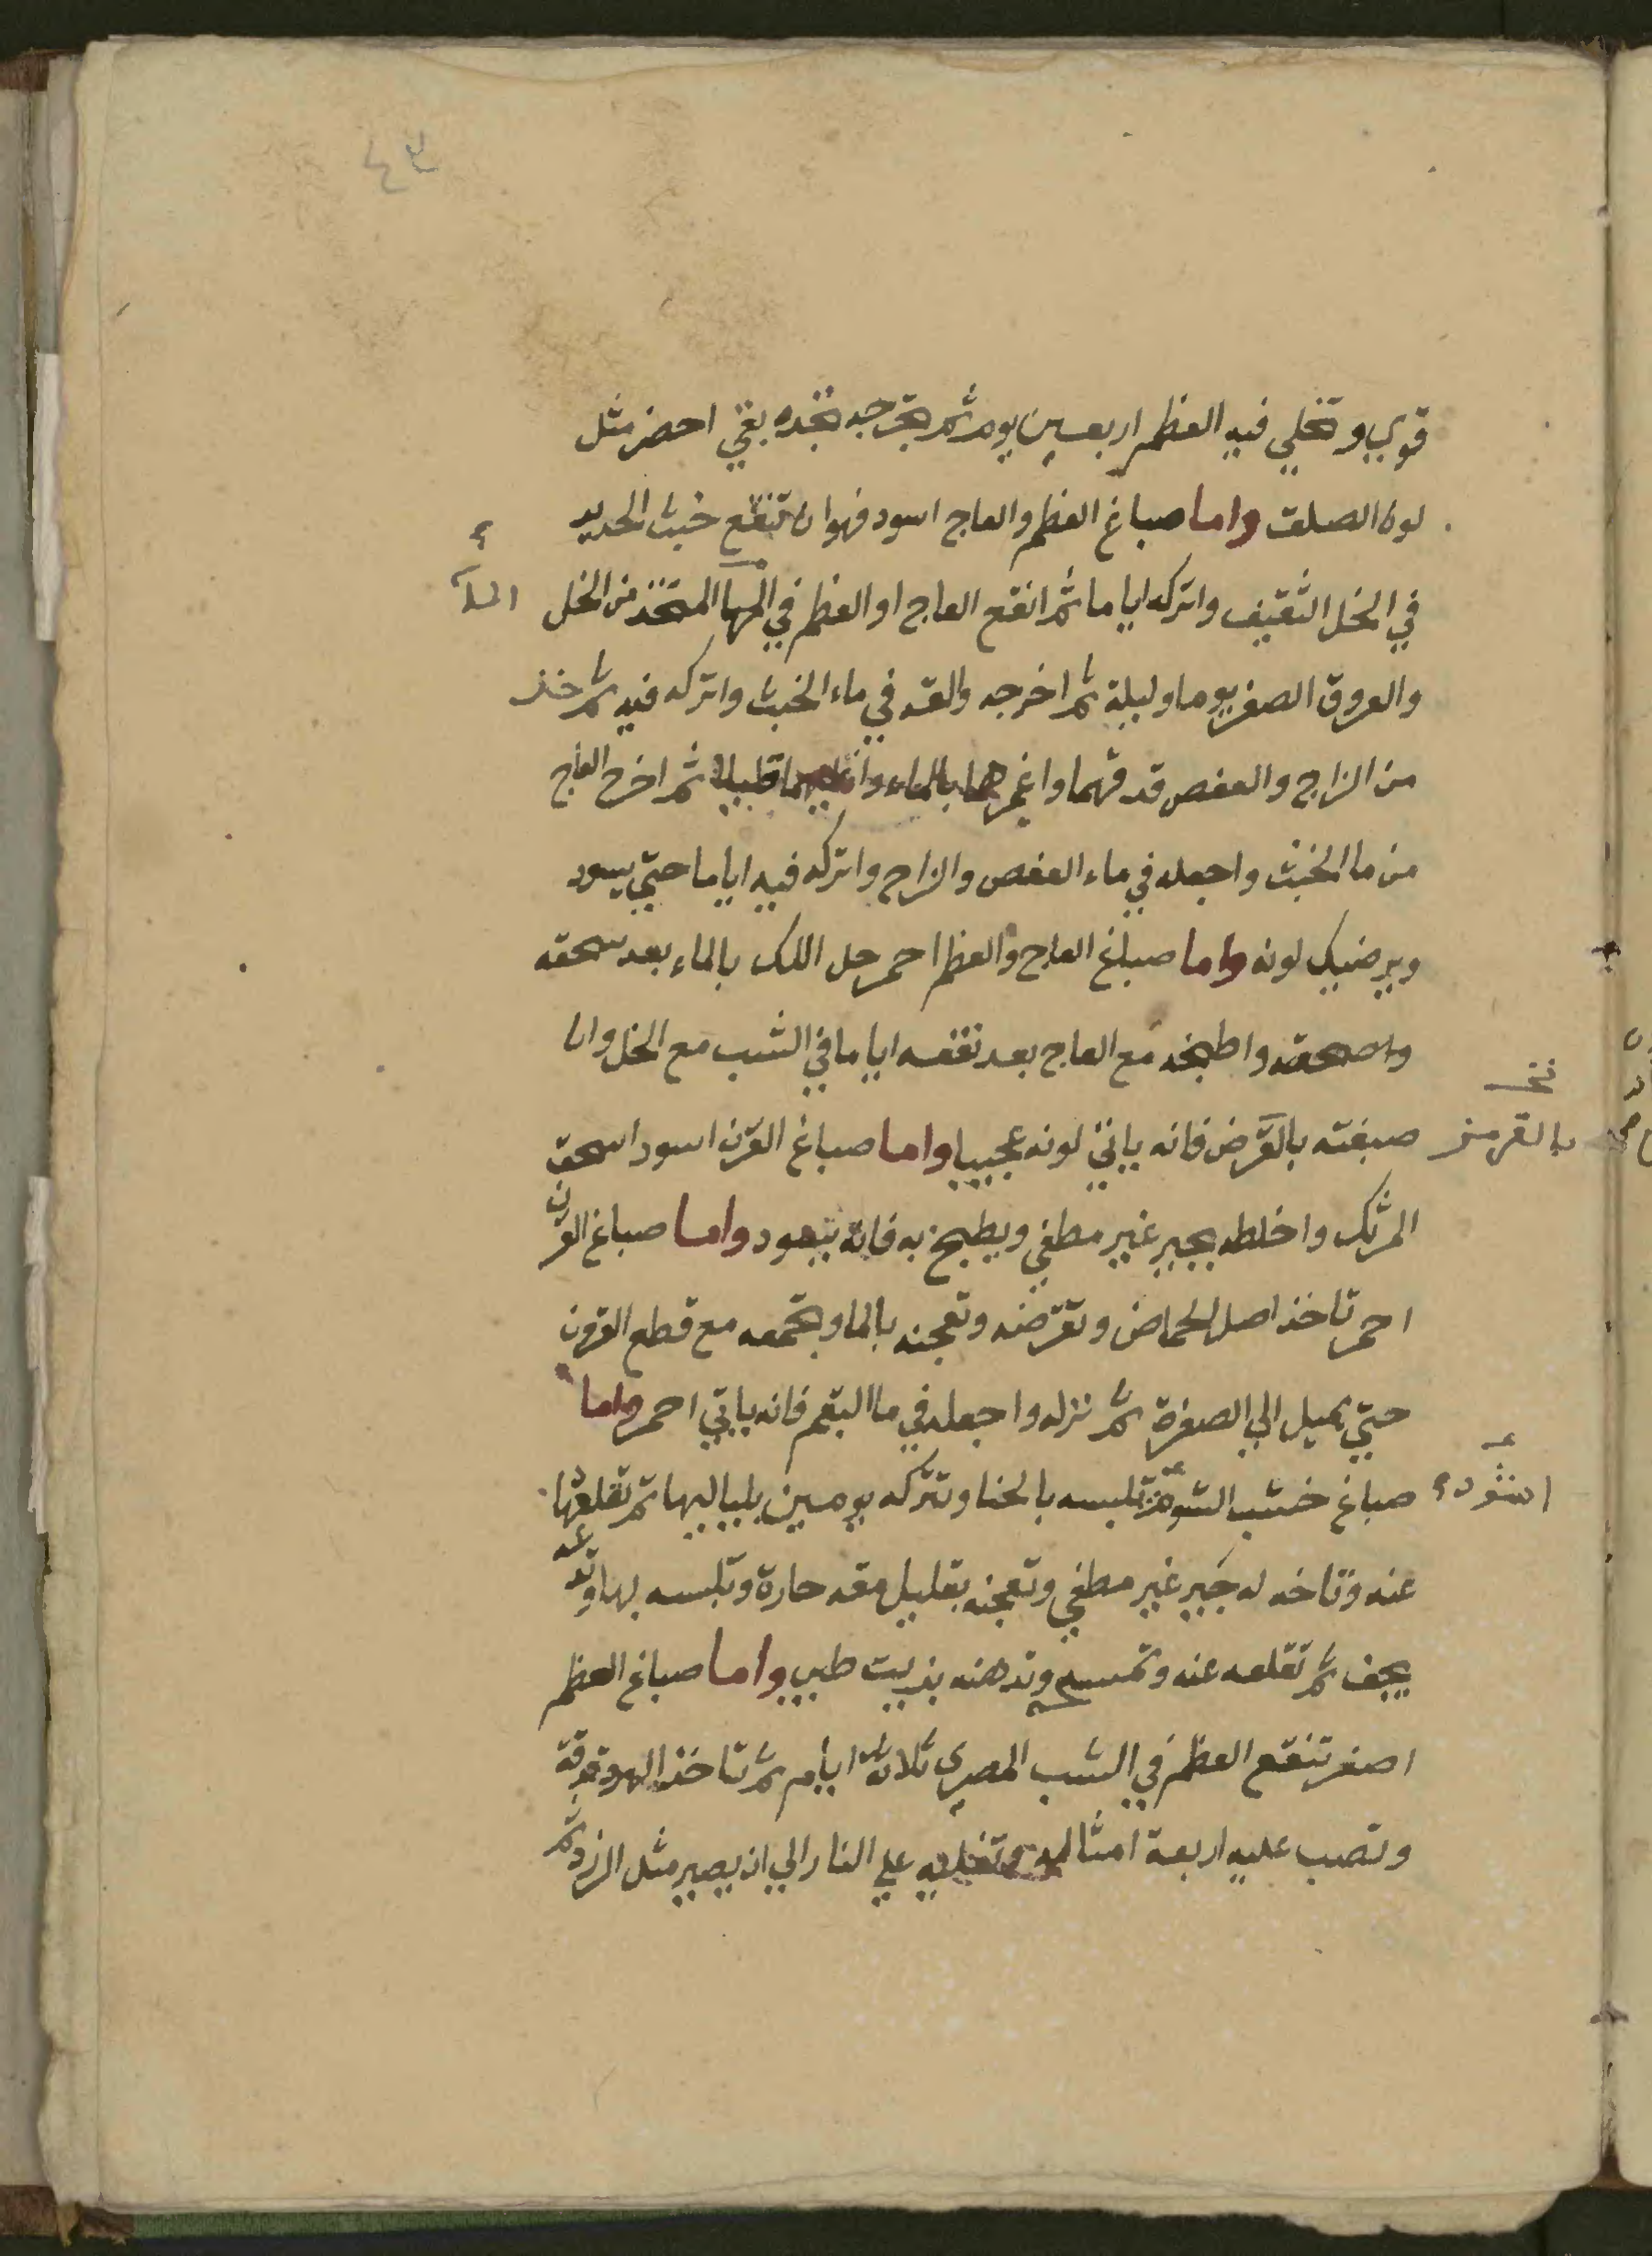 ٤٣
قوي وتخلي فيه العظم اربعين يوم ثم تخرجه تجده بقي اخضر مثل
لون الصلق واما صباغ العظم والعاج اسود فهو ان تنقع خبث الحديد
في الخل الثقيف واتركه اياما ثم انقع العاج او العظم في المها المتخذ من الخل
والعروق الصفر يوما وليلة ثم اخرجه والقه في ماء الخبث واتركه فيه ثم خذ
من الزاج والعفص قدقهما واغمرهما بالماء واغليهما قليلا ثم اخرج العاج
من ما الخبث واجعله في ماء العفص والزاج واتركه فيه اياما حتي يسود
ويرضيك لونه واما صباغ العاج والعظم احمر حل اللك بالماء بعد سحقه
واصحقه واطبخه مع العاج بعد نقعه اياما في الشب مع الخل وان
صبغته بالقرض فانه ياتي لونه عجيبا واما صباغ القرن اسود اسحق
بالقرمز
المرتك واخلطه بجير غير مطفي ويطبخ به فانه يسود واما صباغ القرن
احمر تاخذ اصل الحماض وتقرضه وتعجنه بالما وتجمعه مع قطع القرون
حتي يميل الي الصفرة ثم نزله واجعله في ما البقم فانه ياتي احمر واما
صباغ خشب الشوحر تلبسه بالحنا وتتركه يومين بلياليها ثم تقلعها
عنه وتاخد له جير غير مطفي وتعجنه بقليل مقه حارة وتلبسه بها وتدعه
يجف ثم تقلعه عنه وتمسح وتدهنه بزيت طيب واما صباغ العظم
اصفر تنقع العظم في الشب المصري ثلاثة ايام ثم تاخذ البهو قوقة
وتصب عليه اربعة امثاله وتغليه علي النار الي ان يصير مثل الزرد ثم